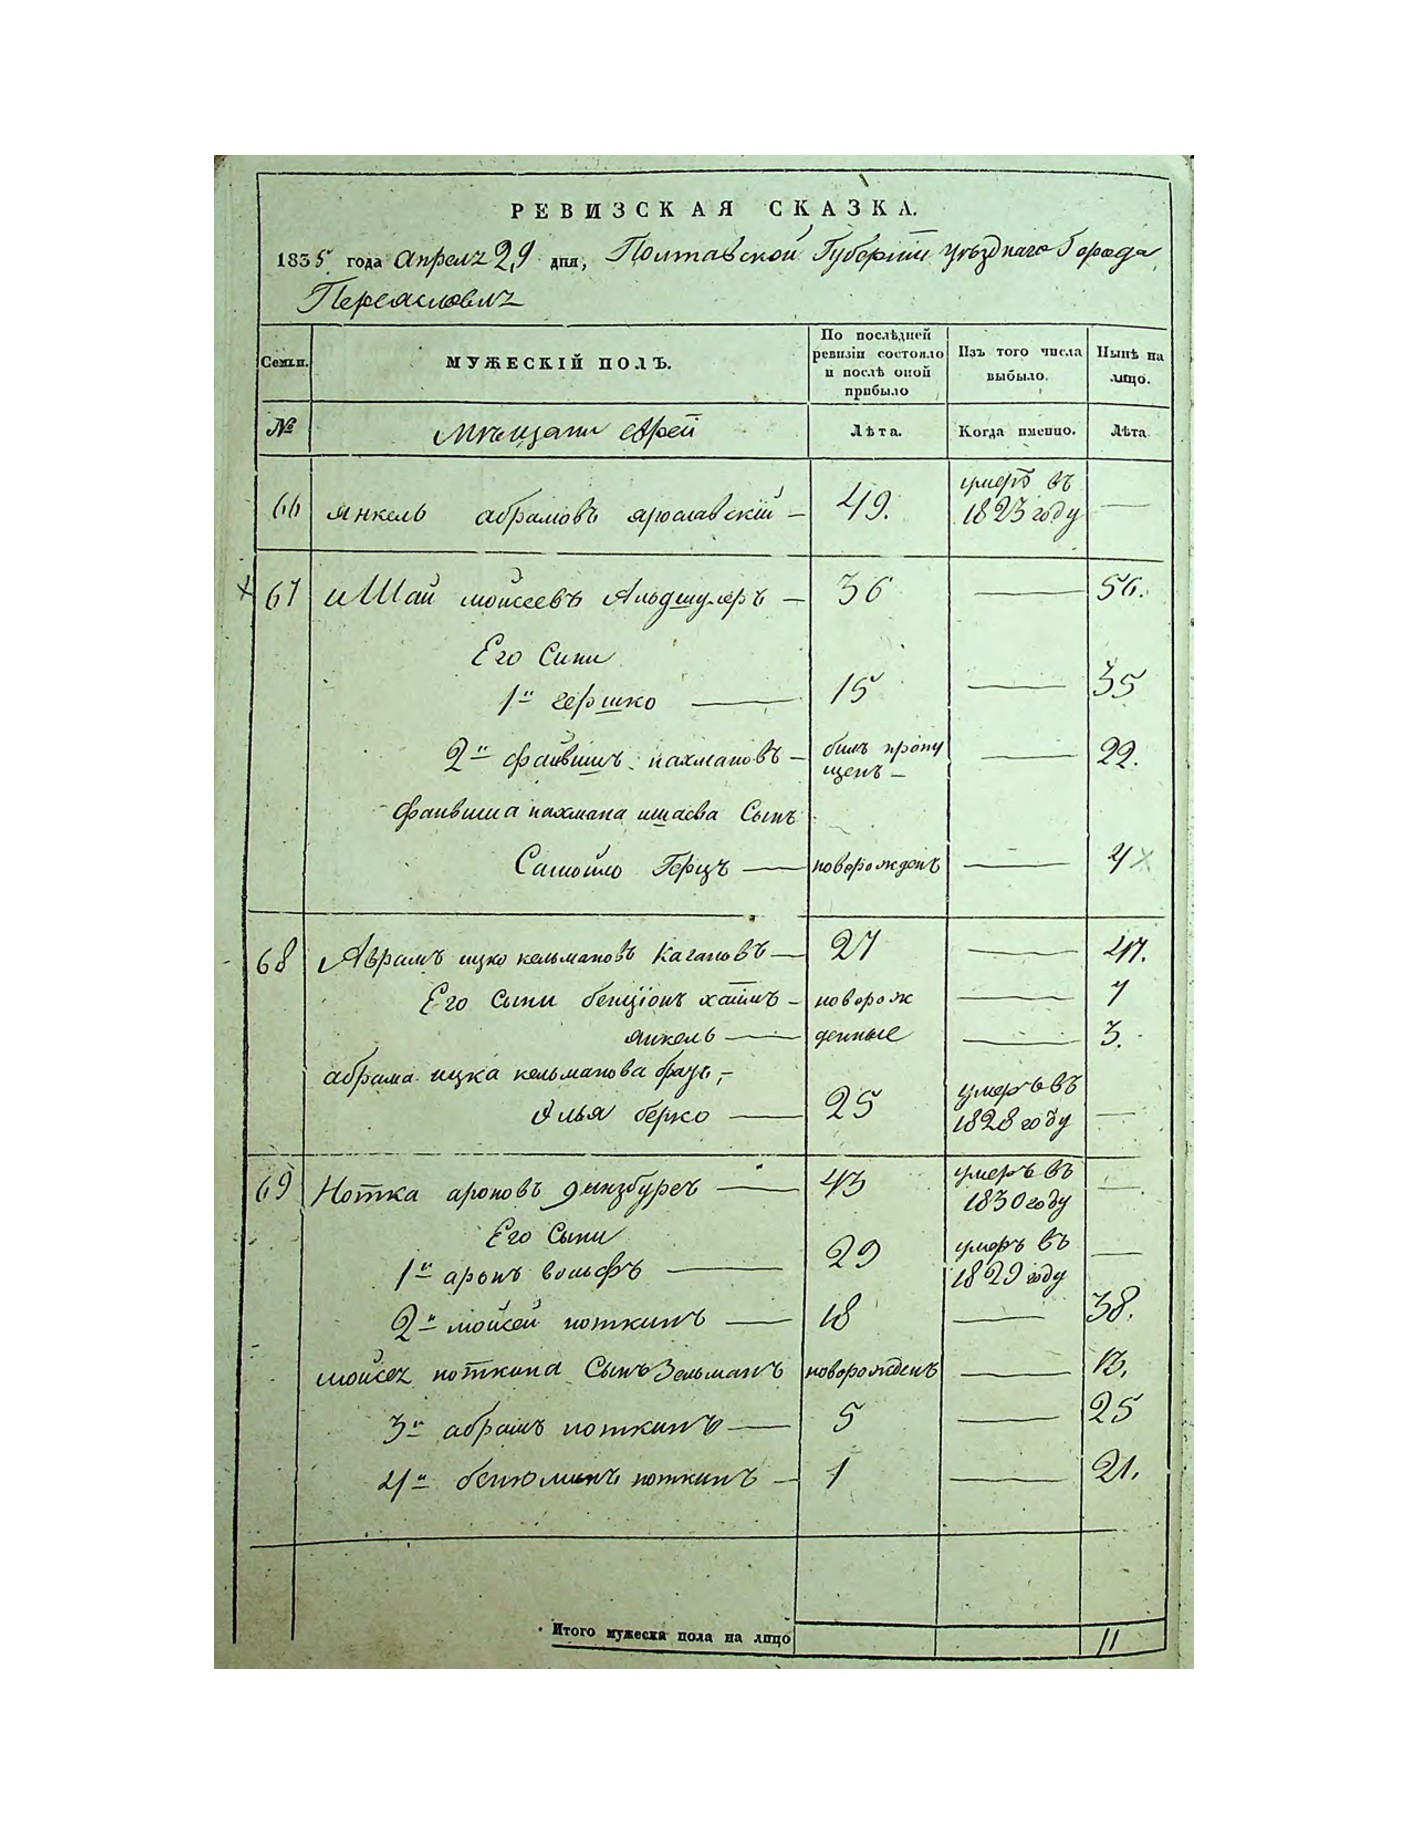 РЕВИЗСКАЯ СКАЗКА.
1835 года апреля 29 дня, Полтавской Губернии уѣзднаго Города
Переяславля
Семьи. МУЖЕСКІЙ ПОЛЪ. По послѣдней ревизіи состояло и послѣ оной прибыло Изъ того числа выбыло. Нынѣ на лицо.
№ Мѣщани евреи Лѣта. Когда именно. Лѣта.
66 янкель абрамовъ ярославскій — 49. умеръ въ 1823 году —
67 иШай мойсеевъ Альдшулеръ — 36 — 56.
Его Сини
1й гершко — 15 — 35
2й файвишъ нахмановъ — билъ пропущенъ — — 22.
файвиша нахмана ишаева Сынъ
Самойло Герцъ — новорожденъ — 4
68 Аврамъ ицко кельмановъ Кагановъ — 27 — 47.
Его Сыни бенціонъ хаимъ — новорож — 7
янкель — денные — 3.
абрама ицка кельманова братъ, —
Илья берко — 25 умеръ въ 1828 году —
69 Нотка ароновъ гинзбургъ — 43 умеръ въ 1830 году —
Его Сыни
1й аронъ вольфъ — 29 умеръ въ 1829 году —
2й мойсей ноткинъ — 18 — 38.
мойсея ноткина Сынъ Зельманъ новорожденъ — 13.
3й абрамъ ноткинъ — 5 — 25
4й бенюминъ ноткинъ — 1 — 21.
Итого мужеска пола на лицо 11